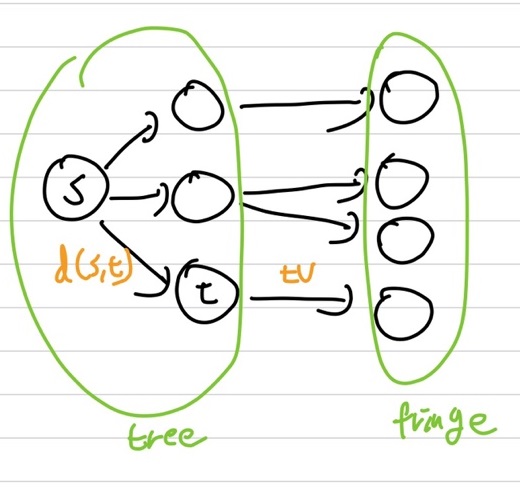 S
d(s,t)
t
tv
tree
fringe